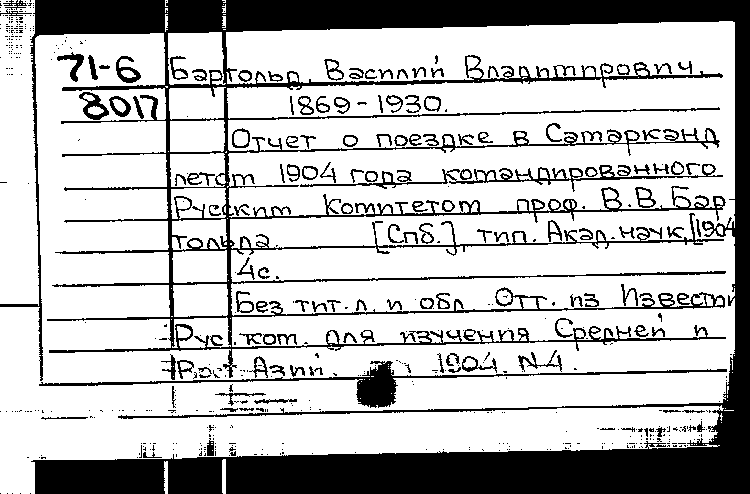 71-6 Бартольд, Василий Владимирович.
8017 1869-1930.
Отчет о поездке в Самарканд
летом 1904 года командированного
Русским Комитетом проф. В.В. Бар-
тольда. [Спб.], тип. Акад. наук, [1904
4с.
Без тит. л. и обл. Отт. из Известий
Рус. ком. для изучения Средней и
Вост. Азии. 1904. N4.